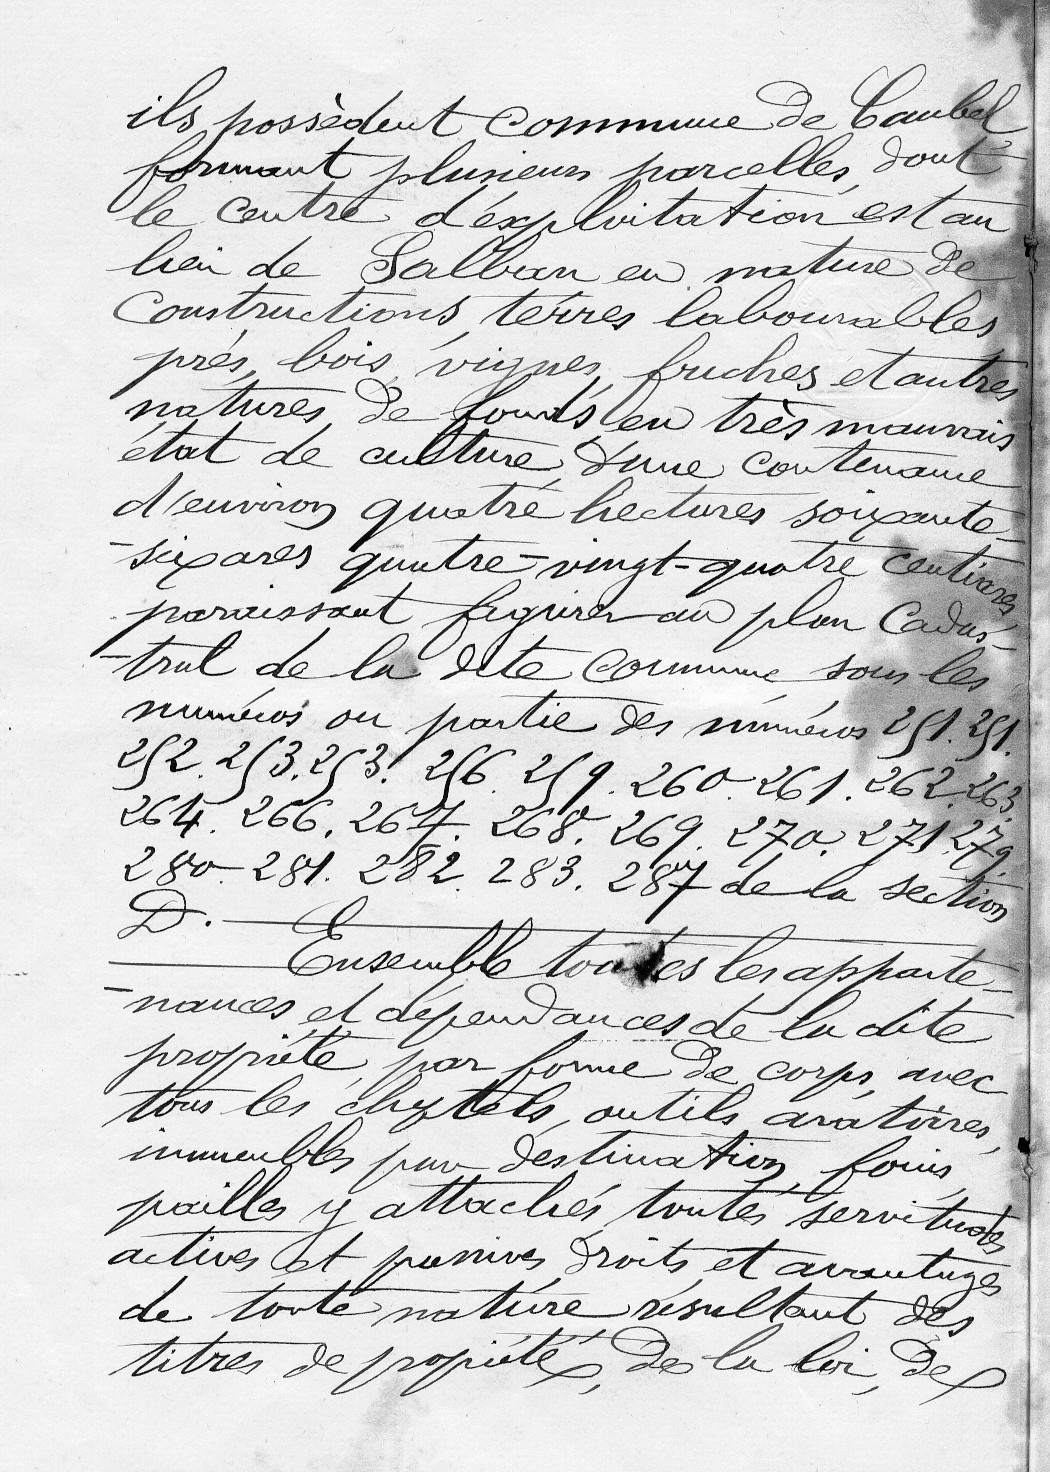 ils possèdent commune de Caubel
formant plusieurs parcelles, dont
le centre d'éxploitation est au
lieu de Salban en nature de
constructions, terres labourables
prés, bois, vignes, friches et autres
natures de fonds en très mauvais
état de culture, d'une contenance
d'environ quatre hectares soixante-
-six ares quatre-vingt-quatre centiares
paraissant figurer au plan Cadas-
-tral de la dite commune, sous les
numéros ou partie des numéros 251. 251.
252. 253. 253. 256. 259. 260. 261. 262. 263.
264. 266. 267. 268. 269. 270. 271. 279.
280. 281. 282. 283. 287 de la section
D. —
— Ensemble toutes les apparte-
-nances et dépendances de la dite
propriété, par forme de corps, avec
tous les cheptels, outils aratoires,
immeubles par destination, foins,
pailles y attachés toutes servitudes
actives et passives, droits et avantages
de toute nature résultant des
titres de propiété, de la loi, de